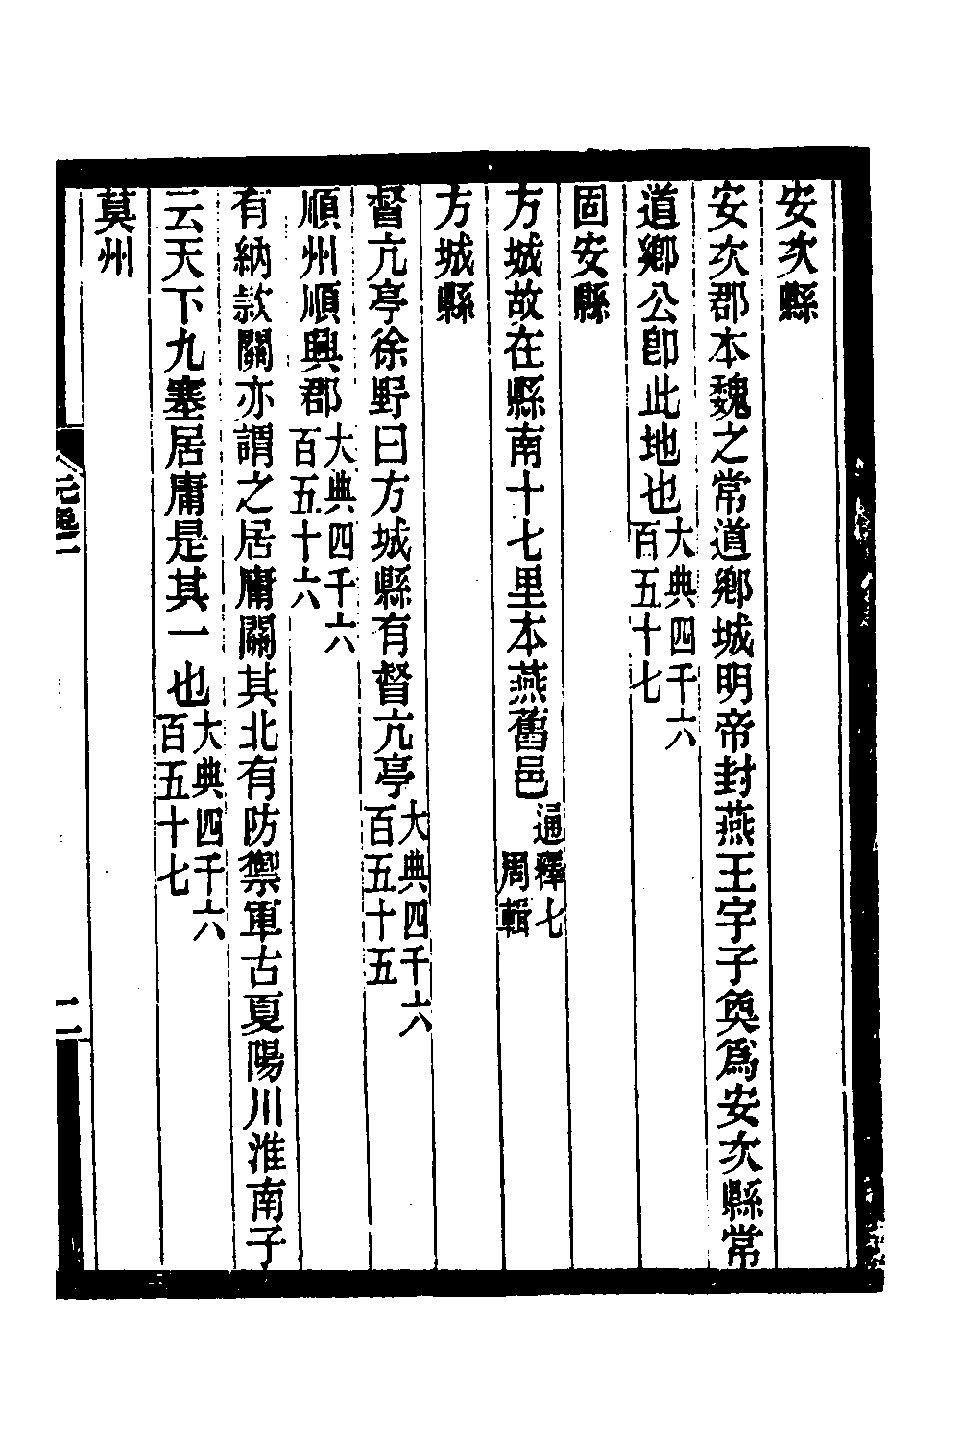 安次縣
安次郡本魏之常道鄉城明帝封燕王宇子奐爲安次縣常
道鄉公卽此地也大典四千六百五十七
固安縣
方城故在縣南十七里本燕舊邑通釋七周輯
方城縣
督亢亭徐野曰方城縣有督亢亭大典四千六百五十五
順州順興郡大典四千六百五十六
有納款關亦謂之居庸關其北有防禦軍古夏陽川淮南子
云天下九塞居庸是其一也大典四千六百五十七
莫州
二